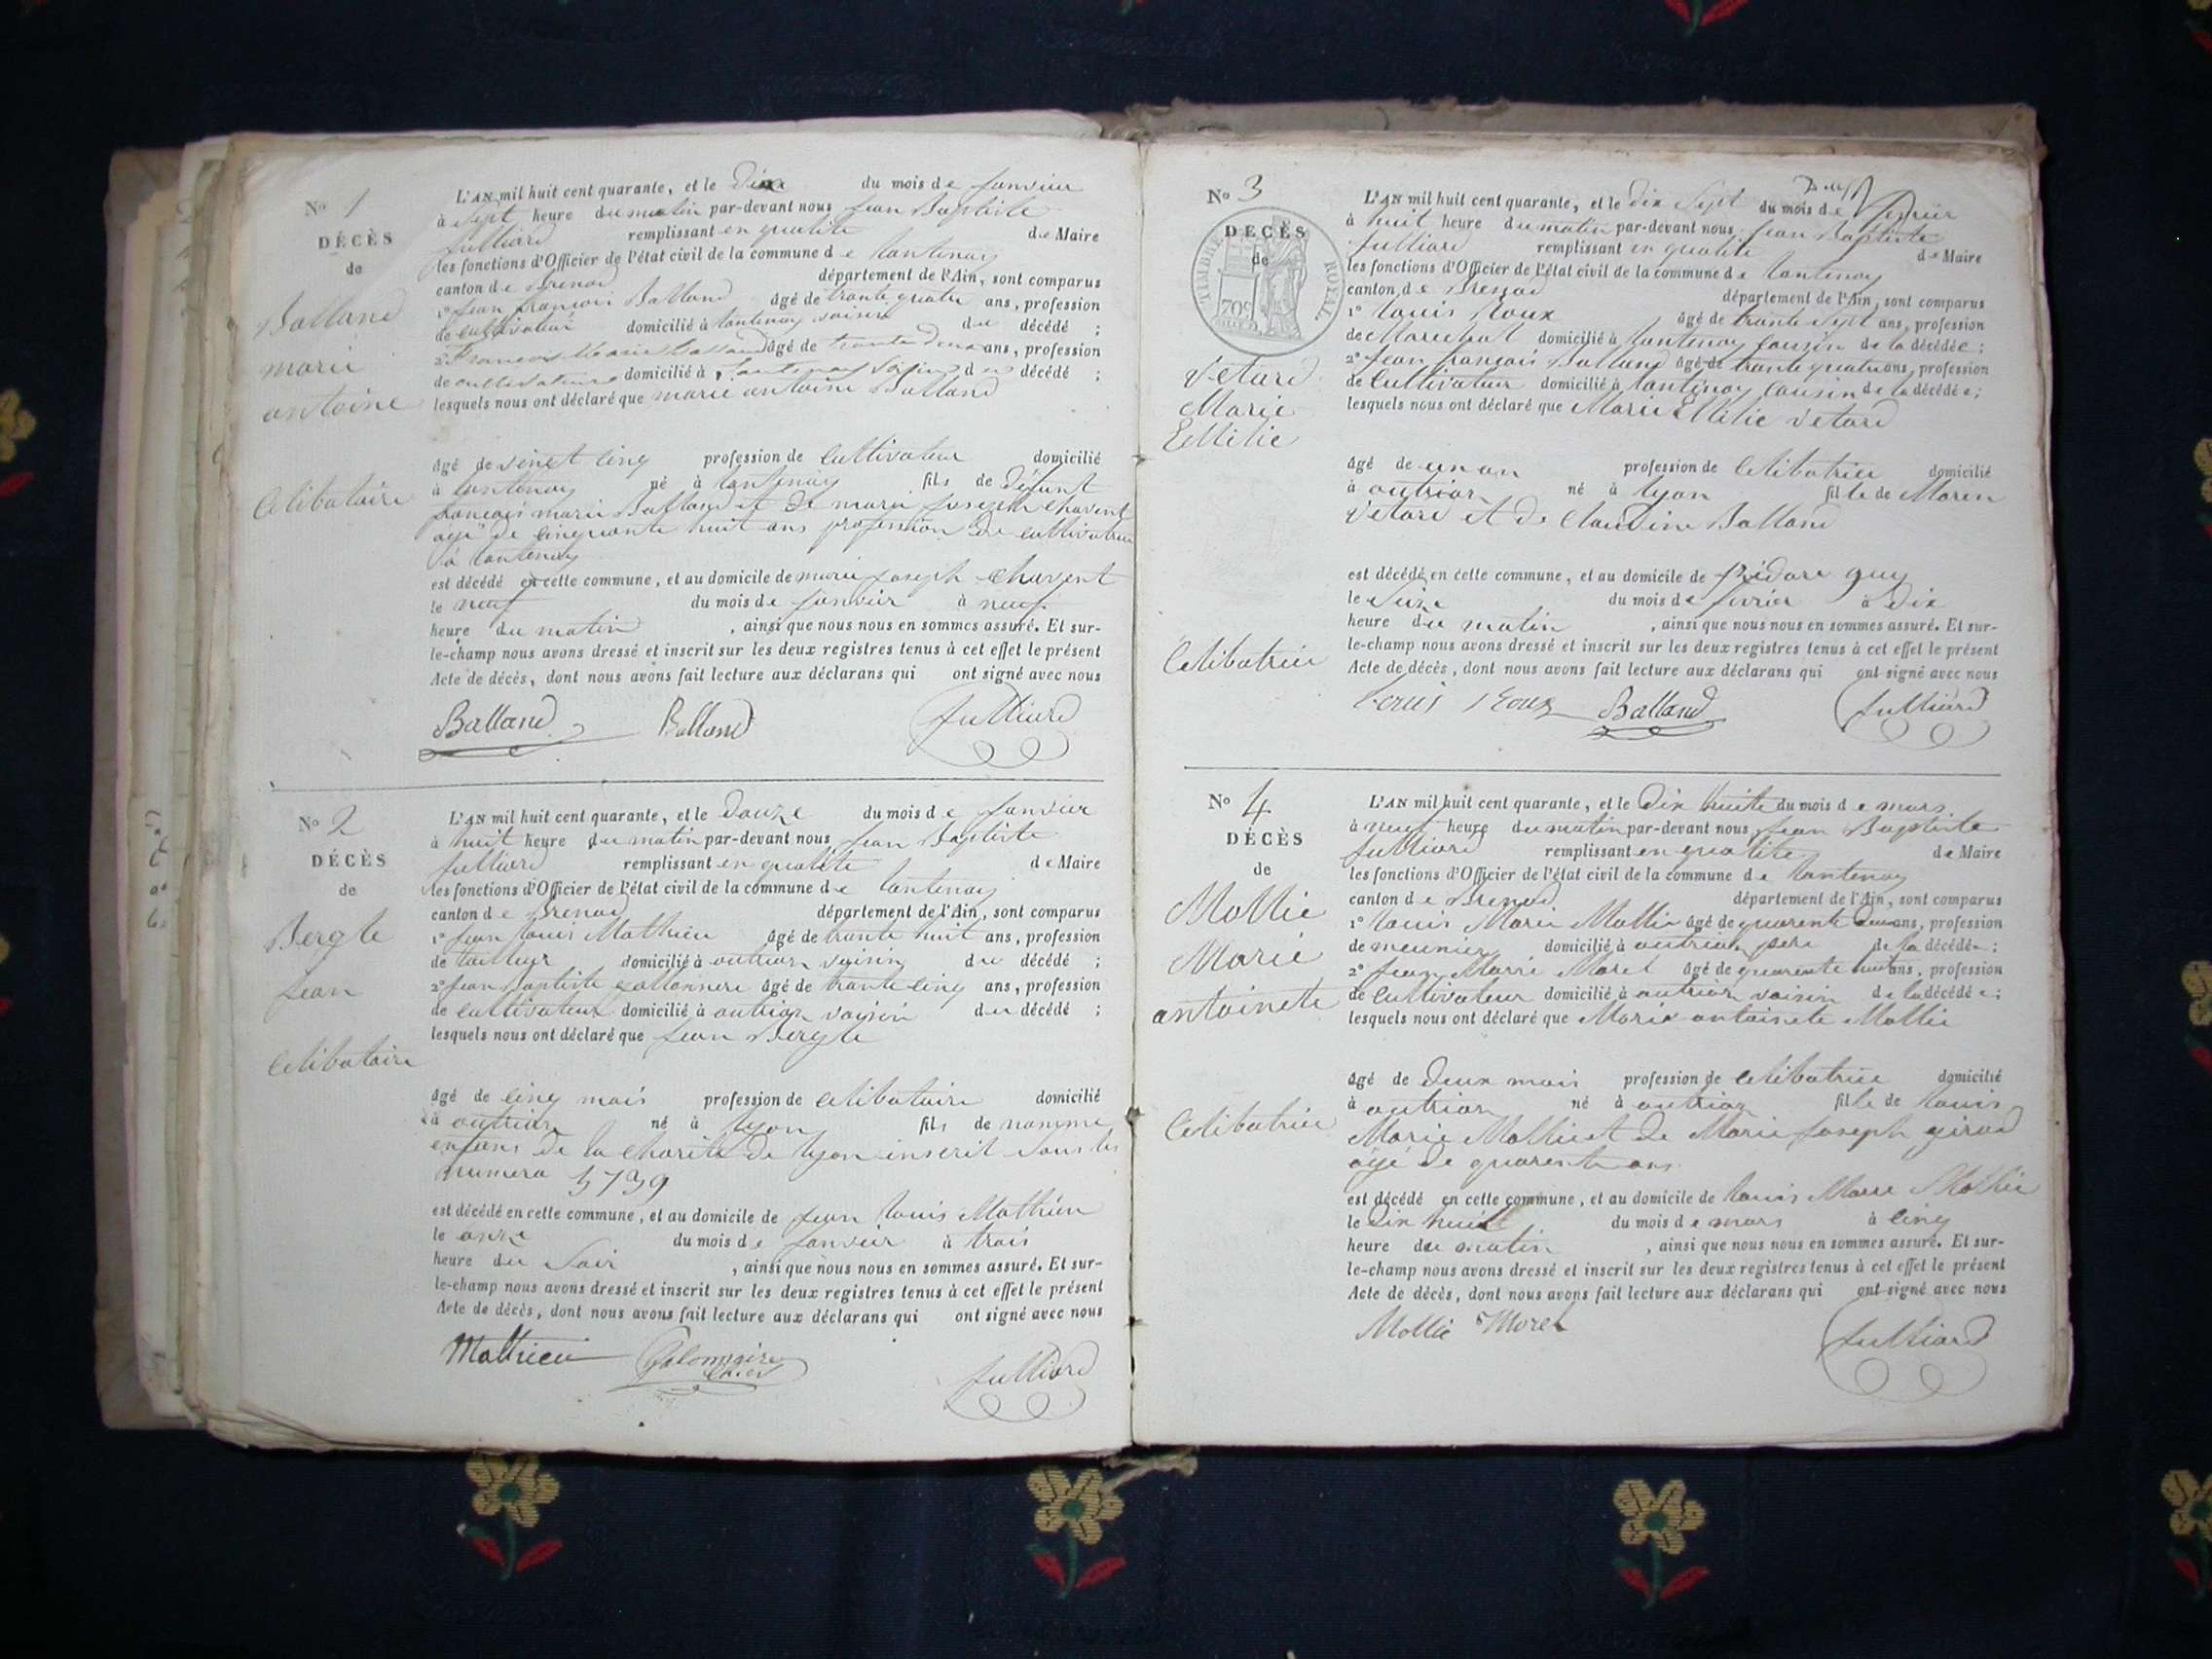 No 1
DÉCÈS
de
Balland
marie
antoine
Celibataire
L'AN mil huit cent quarante, et le Dix du mois de Janvier
à Sept heure du matin par-devant nous Jean Baptiste
Julliard remplissant en qualité de Maire
les fonctions d'Officier de l'état civil de la commune de Lantenay
canton de Brenod département de l'Ain, sont comparus
1° Jean françois Balland âgé de trante quatre ans, profession
de Cultivateur domicilié à Lantenay voisin du décédé ;
2° François Marie Balland âgé de trante deux ans, profession
de cultivateur domicilié à Lantenay voisin du décédé ;
lesquels nous ont déclaré que marie antoine Balland
âgé de vinct cinq profession de Cultivateur domicilié
à Lantenay né à Lantenay fils de Défunt
françois marie Balland et de marie Joseph Chavent
agé de cinquante huit ans profession de cultivatrice
à Lantenay
est décédé en cette commune, et au domicile de marie Joseph Chavent
le neuf du mois de Janvier à neuf
heure du matin , ainsi que nous nous en sommes assuré. Et sur-
le-champ nous avons dressé et inscrit sur les deux registres tenus à cet effet le présent
Acte de décès, dont nous avons fait lecture aux déclarans qui ont signé avec nous
Balland Balland Julliard
No 2
DÉCÈS
de
Bergle
Jean
Celibataire
L'AN mil huit cent quarante, et le Douze du mois de Janvier
à huit heure du matin par-devant nous Jean Baptiste
Julliard remplissant en qualité de Maire
les fonctions d'Officier de l'état civil de la commune de Lantenay
canton de Brenod département de l'Ain, sont comparus
1° Jean Louis Mathieu âgé de trante huit ans, profession
de tailleur domicilié à outriar voisin du décédé ;
2° Jean Baptiste âgé de trante cinq ans, profession
de Cultivateur domicilié à outriar voisin du décédé ;
lesquels nous ont déclaré que Jean Bergle
âgé de cinq mois profession de Celibataire domicilié
à outriar né à Lyon fils de nommé
enfans de la Charité de Lyon inscrit Sous les
numero 5739
est décédé en cette commune, et au domicile de Jean Louis Mathieu
le onze du mois de Janvier à trois
heure du Soir , ainsi que nous nous en sommes assuré. Et sur-
le-champ nous avons dressé et inscrit sur les deux registres tenus à cet effet le présent
Acte de décès, dont nous avons fait lecture aux déclarans qui ont signé avec nous
Mathieu Julliard
No 3
DÉCÈS
de
TIMBRE ROYAL
70c
Vetard
Marie
Emilie
Celibatrice
L'AN mil huit cent quarante, et le Dix Sept du mois de fevrier
à huit heure du matin par-devant nous Jean Baptiste
Julliard remplissant en qualité de Maire
les fonctions d'Officier de l'état civil de la commune de Lantenay
canton de Brenod département de l'Ain, sont comparus
1° Louis Roux âgé de trante Sept ans, profession
de Marechal domicilié à Lantenay Cousin de la décédée ;
2° Jean françois Balland âgé de trante quatre ans, profession
de Cultivateur domicilié à Lantenay Cousin de la décédée ;
lesquels nous ont déclaré que Marie Emilie Vetard
âgé de un an profession de Celibatrice domicilié
à outriar né à Lyon fille de
Vetard et de Claudine Balland
est décédé en cette commune, et au domicile de guy
le Seize du mois de fevrier à Dix
heure du matin , ainsi que nous nous en sommes assuré. Et sur-
le-champ nous avons dressé et inscrit sur les deux registres tenus à cet effet le présent
Acte de décès, dont nous avons fait lecture aux déclarans qui ont signé avec nous
Louis Roux Balland Julliard
No 4
DÉCÈS
de
Mollie
Marie
antoinete
Celibatrice
L'AN mil huit cent quarante, et le Dix huite du mois de mars
à neuf heure du matin par-devant nous Jean Baptiste
Julliard remplissant en qualite de Maire
les fonctions d'Officier de l'état civil de la commune de Lantenay
canton de Brenod département de l'Ain, sont comparus
1° Louis Marie Mollie âgé de quarente Deux ans, profession
de meunier domicilié à outriar pere de la décédée ;
2° Jean Marie Morel âgé de quarente huit ans, profession
de Cultivateur domicilié à outriar voisin de la décédée ;
lesquels nous ont déclaré que Marie antoinete Mollie
âgé de Deux mois profession de Celibatrice domicilié
à outriar né à outriar fille de Louis
Marie Mollie et de Marie Joseph girod
agé de quarente ans
est décédé en cette commune, et au domicile de Louis Marie Mollie
le Dix huit du mois de mars à cinq
heure du matin , ainsi que nous nous en sommes assuré. Et sur-
le-champ nous avons dressé et inscrit sur les deux registres tenus à cet effet le présent
Acte de décès, dont nous avons fait lecture aux déclarans qui ont signé avec nous
Mollie Morel Julliard